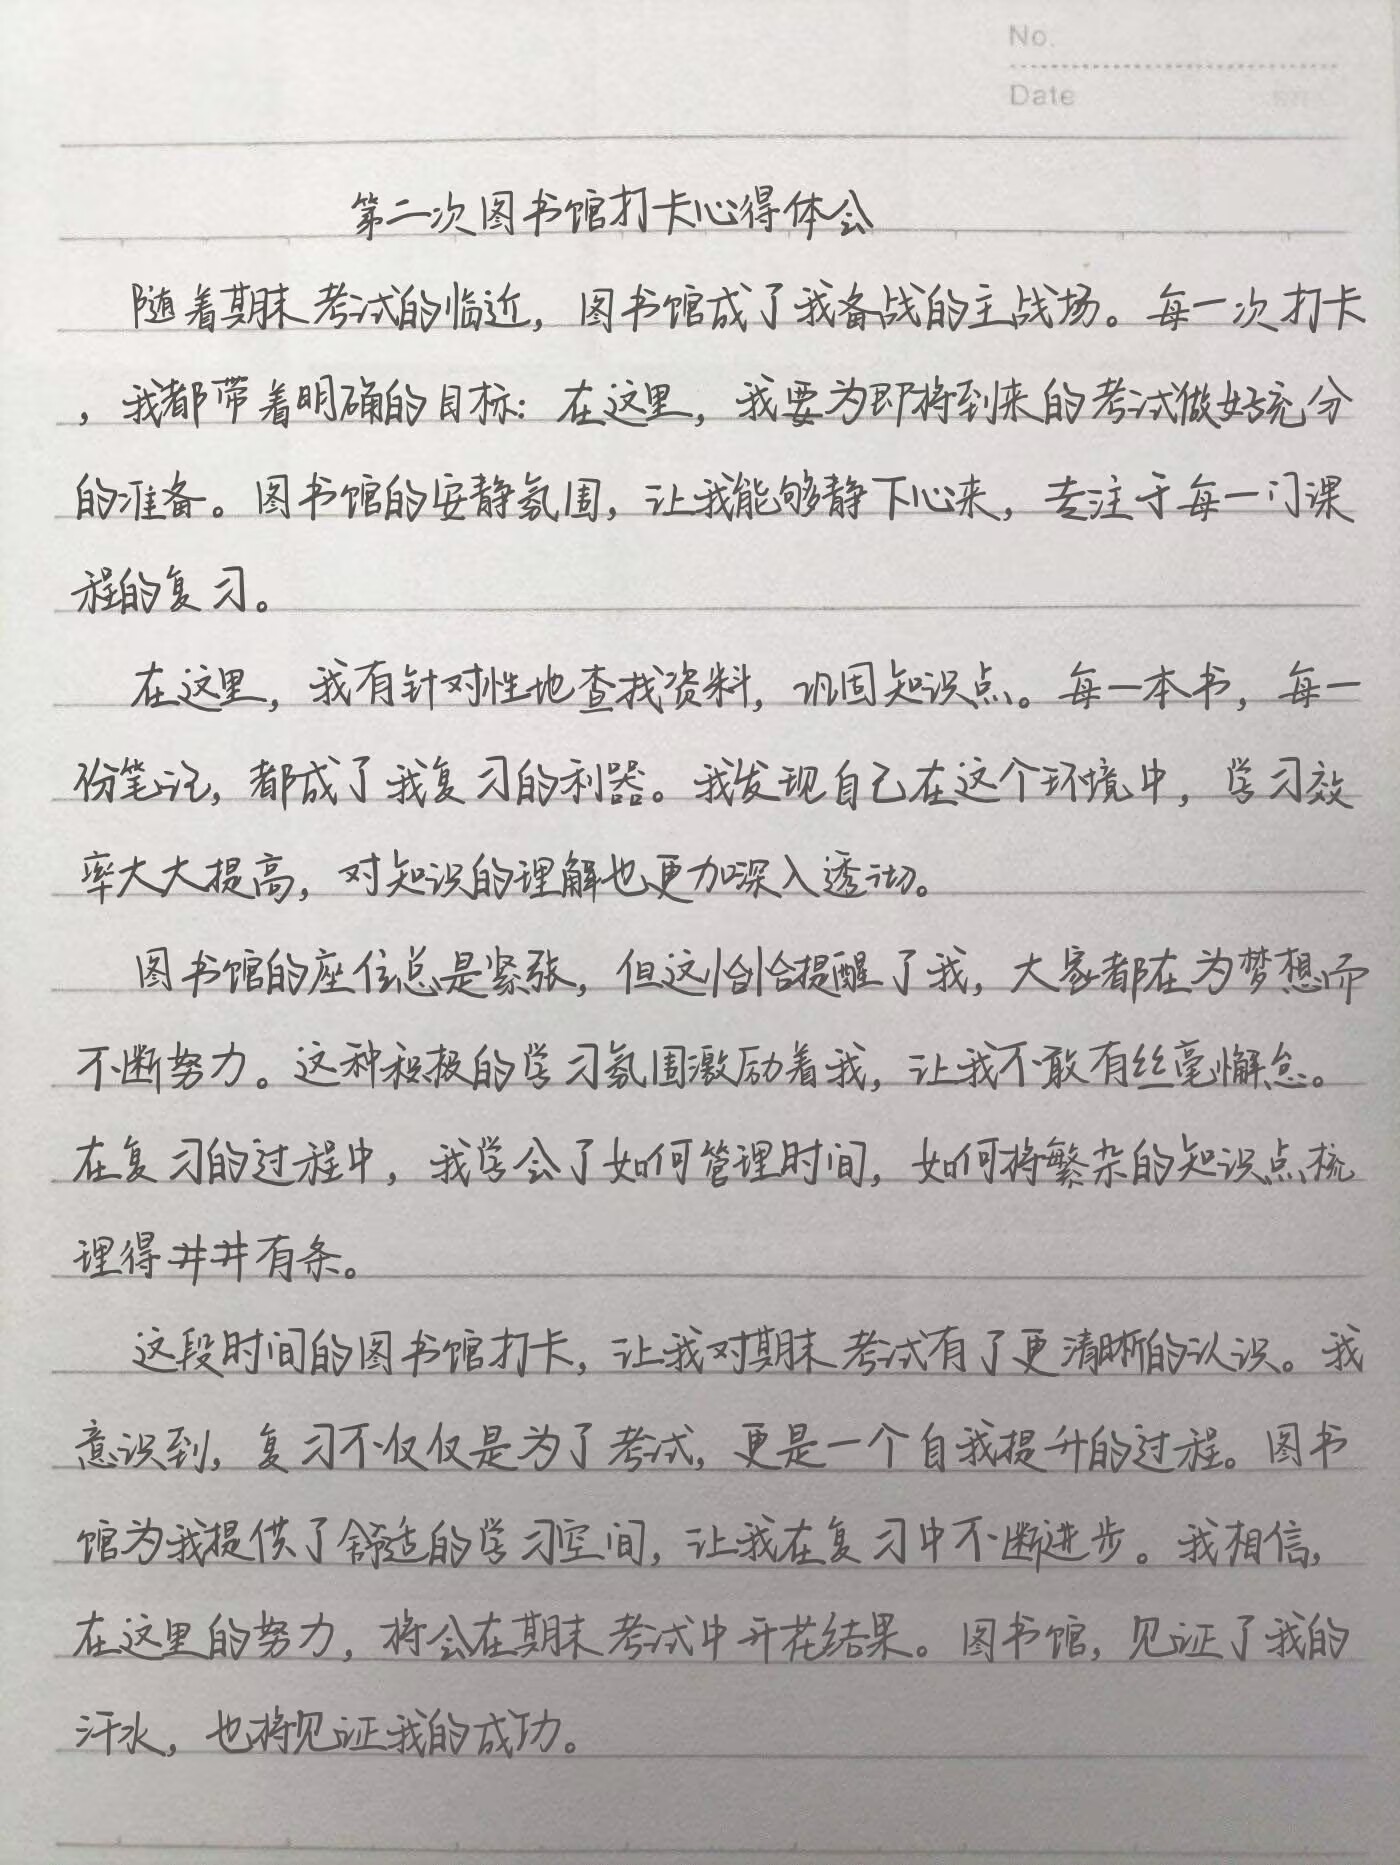 No.
Date
第二次图书馆打卡心得体会
随着期末考试的临近，图书馆成了我备战的主战场。每一次打卡
，我都带着明确的目标：在这里，我要为即将到来的考试做好充分
的准备。图书馆的安静氛围，让我能够静下心来，专注于每一门课
程的复习。
在这里，我有针对性地查找资料，巩固知识点。每一本书，每一
份笔记，都成了我复习的利器。我发现自己在这个环境中，学习效
率大大提高，对知识的理解也更加深入透彻。
图书馆的座位总是紧张，但这恰恰提醒了我，大家都在为梦想而
不断努力。这种积极的学习氛围激励着我，让我不敢有丝毫懈怠。
在复习的过程中，我学会了如何管理时间，如何将繁杂的知识点梳
理得井井有条。
这段时间的图书馆打卡，让我对期末考试有了更清晰的认识。我
意识到，复习不仅仅是为了考试，更是一个自我提升的过程。图书
馆为我提供了舒适的学习空间，让我在复习中不断进步。我相信，
在这里的努力，将会在期末考试中开花结果。图书馆，见证了我的
汗水，也将见证我的成功。